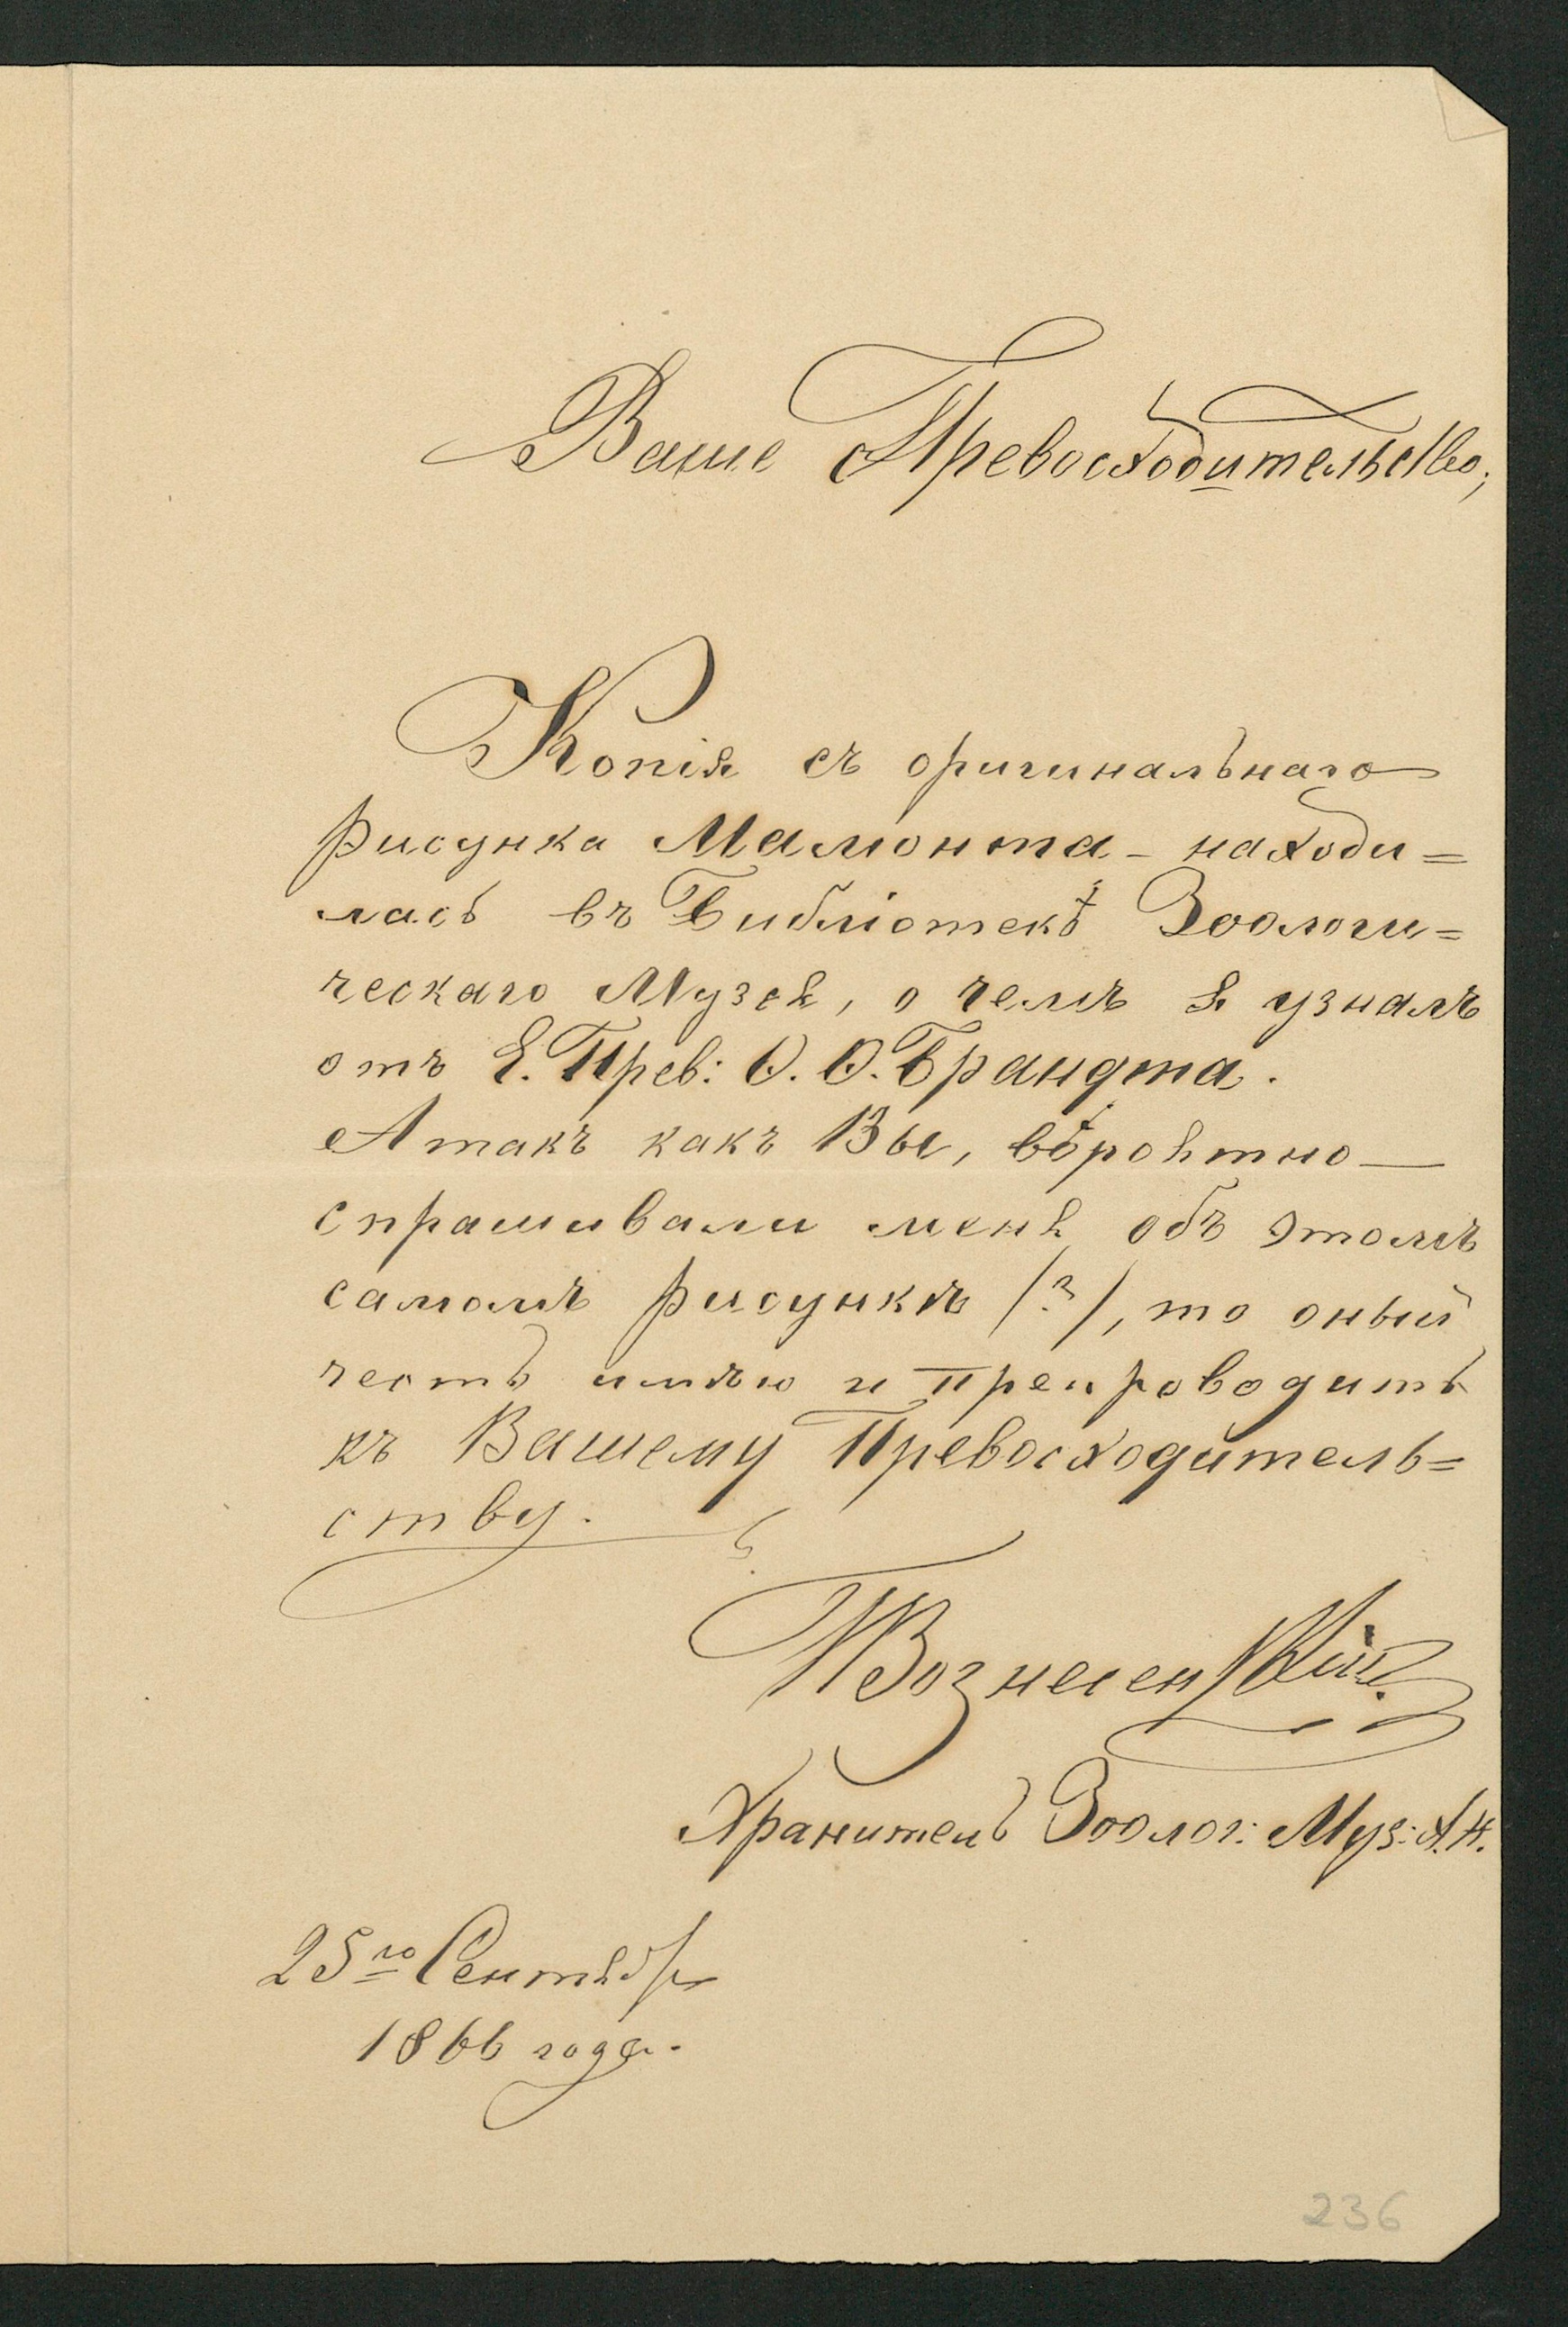 Ваше Превосходительство;
Копія съ оригинальнаго
рисунка Мамонта – находи=
лась въ Библіотекѣ Зоологи=
ческаго Музея, о чемъ я узналъ
отъ Е. Прев: Ѳ. Ѳ. Брандта.
А такъ какъ Вы, вѣроятно —
спрашивали меня объ этомъ
самомъ рисункѣ /?/, то оный
честь имѣю и препроводить
къ Вашему Превосходитель=
ству.
И Вознесенскій.
Хранитель Зоолог: Муз: А. Н.
25го Сентября
1866 года.
236